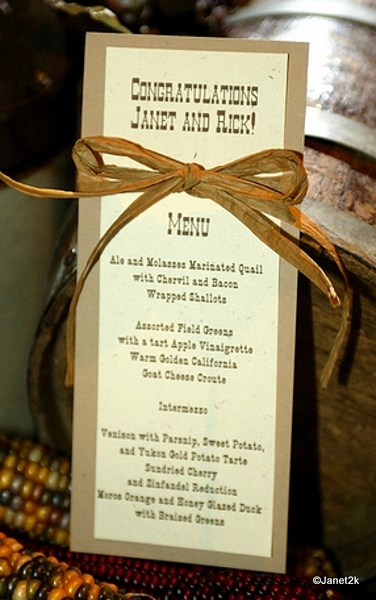 Congratulations
Janet and Rick!
Menu
Ale and Molasses Marinated Quail
with Chervil and Bacon
Wrapped Shallots
Assorted Field Greens
with a tart Apple Vinaigrette
Warm Golden California
Goat Cheese Croute
Intermezzo
Venison with Parsnip, Sweet Potato,
and Yukon Gold Potato Tarte
Sundried Cherry
and Zinfandel Reduction
Moros Orange and Honey Glazed Duck
with Braised Greens
©Janet2k